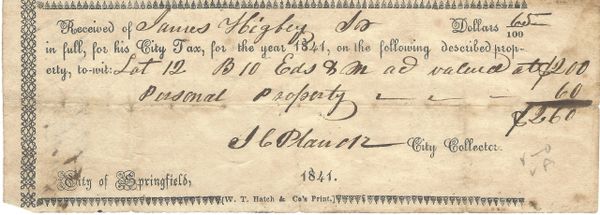 Received of James Higby Six Dollars 65/100
in full, for his City Tax, for the year 1841, on the following described prop-
erty, to-wit: Lot 12 B 10 Eds & M ad valued at $200
Personal Property " " " 60
$260
City Collector.
City of Springfield, 1841.
(W. T. Hatch & Co's Print.)